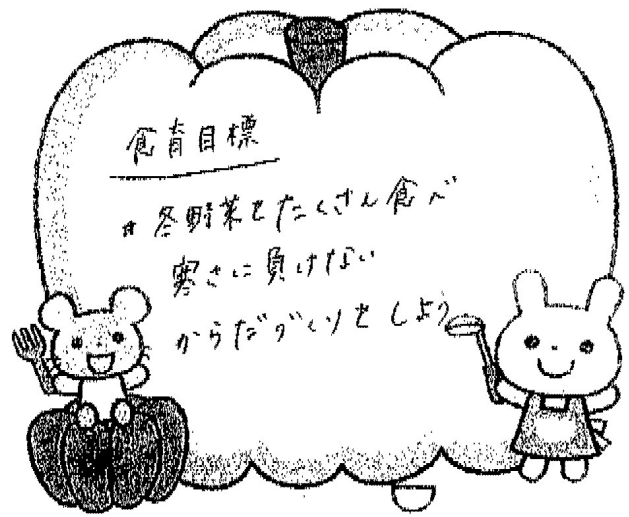 食育目標
＃冬野菜をたくさん食べ
寒さに負けない
からだづくりをしよう